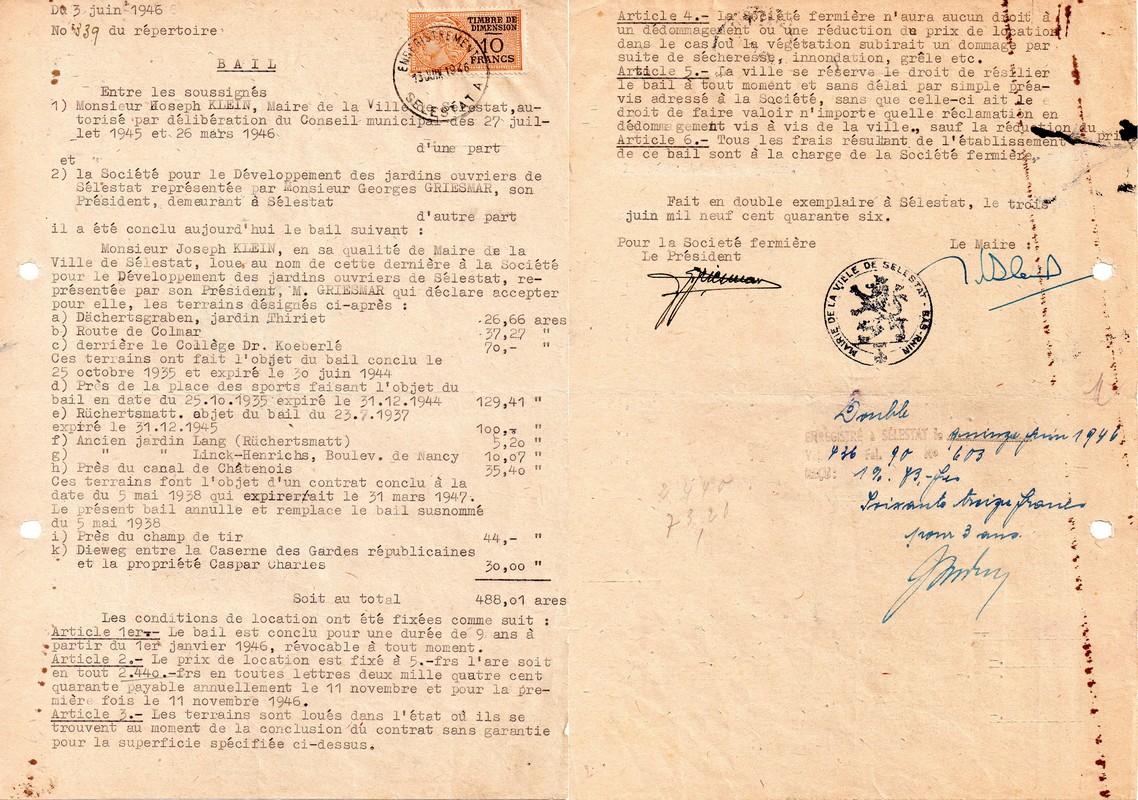 Du 3 juin 1946
No 339 du répertoire
TIMBRE DE
DIMENSION
10
FRANCS
ENREGISTREMENT
13 JUIN 1946
SELESTAT
B A I L
Entre les soussignés
1) Monsieur Joseph KLEIN, Maire de la Ville de Sélestat,au-
torisé par délibération du Conseil municipal des 27 juil-
let 1945 et 26 mars 1946
d'une part
et
2) la Société pour le Développement des jardins ouvriers de
Sélestat représentée par Monsieur Georges GRIESMAR, son
Président, demeurant à Sélestat
d'autre part
il a été conclu aujourd'hui le bail suivant :
Monsieur Joseph KLEIN, en sa qualité de Maire de la
Ville de Sélestat, loue au nom de cette dernière à la Société
pour le Développement des jardins ouvriers de Sélestat, re-
présentée par son Président, M. GRIESMAR qui déclare accepter
pour elle, les terrains désignés ci-après :
a) Dächertsgraben, jardin Thiriet 26,66 ares
b) Route de Colmar 37,27 "
c) derrière le Collège Dr. Koeberlé 70,- "
Ces terrains ont fait l'objet du bail conclu le
25 octobre 1935 et expiré le 3o juin 1944
d) Près de la place des sports faisant l'objet du
bail en date du 25.1o.1935 expiré le 31.12.1944 129,41 "
e) Rüchertsmatt. objet du bail du 23.7.1937
expiré le 31.12.1945 1oo,- "
f) Ancien jardin Lang (Rüchertsmatt) 5,2o "
g) " " Linck-Henrichs, Boulev. de Nancy 1o,o7 "
h) Près du canal de Châtenois 35,4o "
Ces terrains font l'objet d'un contrat conclu à la
date du 5 mai 1938 qui expirerait le 31 mars 1947.
Le présent bail annulle et remplace le bail susnommé
du 5 mai 1938
i) Près du champ de tir 44,- "
k) Dieweg entre la Caserne des Gardes républicaines
et la propriété Caspar Charles 3o,oo "
Soit au total 488,o1 ares
Les conditions de location ont été fixées comme suit :
Article 1er.- Le bail est conclu pour une durée de 9 ans à
partir du 1er janvier 1946, révocable à tout moment.
Article 2.- Le prix de location est fixé à 5.-frs l'are soit
en tout 2.44o.-frs en toutes lettres deux mille quatre cent
quarante payable annuellement le 11 novembre et pour la pre-
mière fois le 11 novembre 1946.
Article 3.- Les terrains sont loués dans l'état où ils se
trouvent au moment de la conclusion du contrat sans garantie
pour la superficie spécifiée ci-dessus.
Article 4.- La Société fermière n'aura aucun droit à
un dédommagement ou une réduction du prix de location
dans le cas où la végétation subirait un dommage par
suite de sécheresse, innondation, grêle etc.
Article 5.- La ville se réserve le droit de résilier
le bail à tout moment et sans délai par simple préa-
vis adressé à la Société, sans que celle-ci ait le
droit de faire valoir n'importe quelle réclamation en
dédommagement vis à vis de la ville., sauf la réduction du prix
Article 6.- Tous les frais résultant de l'établissement
de ce bail sont à la charge de la Société fermière.
Fait en double exemplaire à Sélestat, le trois
juin mil neuf cent quarante six.
Pour la Societé fermière Le Maire :
Le Président
MAIRIE DE LA VILLE DE SELESTAT - BAS-RHIN
1
Double
ENREGISTRÉ à SÉLESTAT le quinze juin 1946
Vol. 436 Fol. 90 No 603
REÇU: 1%. 73.-frs
Soixante treize francs
pour 3 ans.
2440
73,21